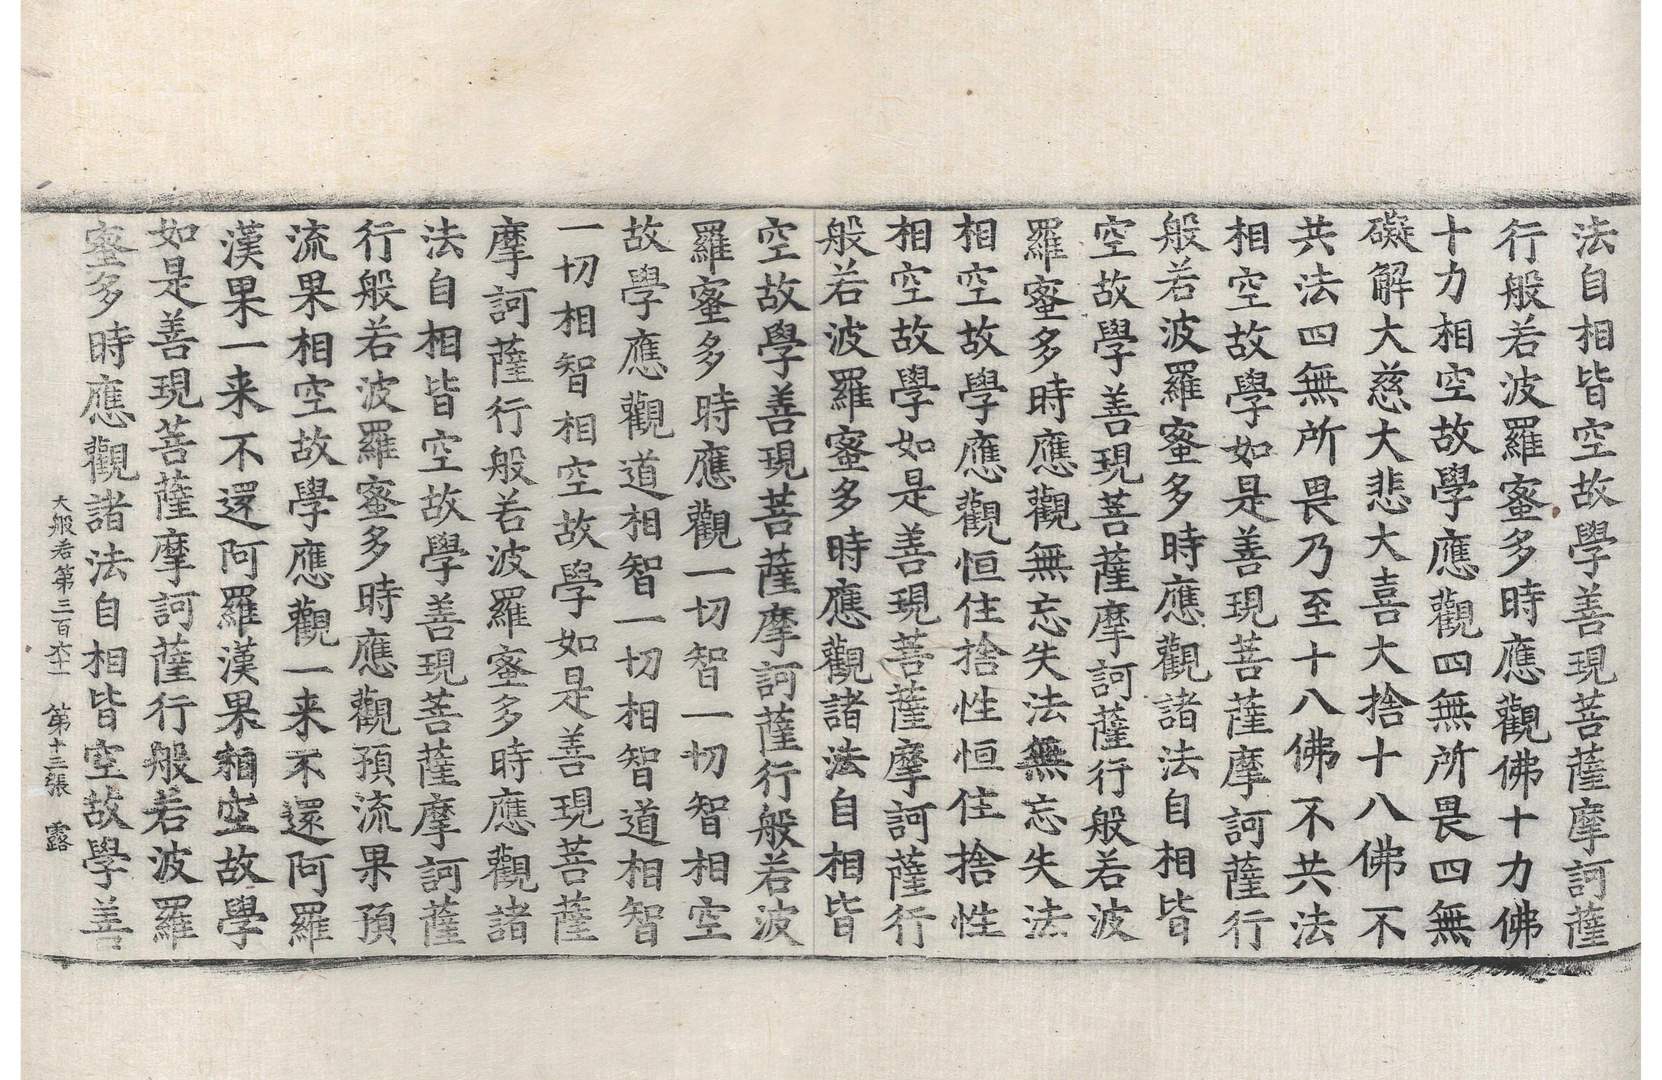 法自相皆空故學善現菩薩摩訶薩
行般若波羅蜜多時應觀佛十力佛
十力相空故學應觀四無所畏四無
礙解大慈大悲大喜大捨十八佛不
共法四無所畏乃至十八佛不共法
相空故學如是善現菩薩摩訶薩行
般若波羅蜜多時應觀諸法自相皆
空故學善現菩薩摩訶薩行般若波
羅蜜多時應觀無忘失法無忘失法
相空故學應觀恒住捨性恒住捨性
相空故學如是善現菩薩摩訶薩行
般若波羅蜜多時應觀諸法自相皆
空故學善現菩薩摩訶薩行般若波
羅蜜多時應觀一切智一切智相空
故學應觀道相智一切相智道相智
一切相智相空故學如是善現菩薩
摩訶薩行般若波羅蜜多時應觀諸
法自相皆空故學善現菩薩摩訶薩
行般若波羅蜜多時應觀預流果預
流果相空故學應觀一来不還阿羅
漢果一来不還阿羅漢果相空故學
如是善現菩薩摩訶薩行般若波羅
蜜多時應觀諸法自相皆空故學善
大般若第三百六十一 第十三張 露